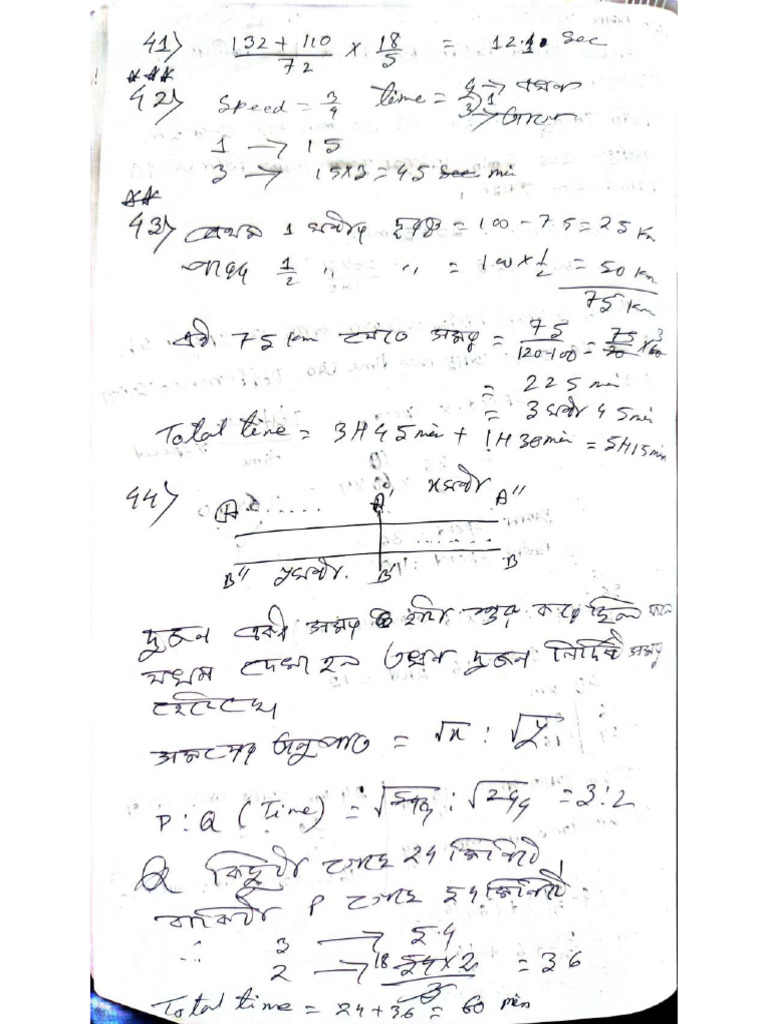 41) (132 + 110)/72 × 18/5 = 12.1 Sec
***
42) Speed = 3/4 time = 4/3 ) 1
1 → 15
3 → 15×3 = 45 min
**
43) প্রথম 1 ঘন্টায় দূরত্ব = 100 - 75 = 25 Km
পরের 1/2 " " = 100 × 1/2 = 50 Km
75 Km
এই 75 km যেতে সময় = 75/(120-100) = 75/20 × 60 3
= 225 min
= 3 ঘন্টা 45 min
Total time = 3H 45 min + 1H 30 min = 5H 15 min
44) A A' xঘন্টা A''
B'' yঘন্টা B' B
দুজন একই সময়ে হাঁটা শুরু করেছিল
যখন দেখা হল তখন দুজন নির্দিষ্ট সময়
হেঁটেছে।
সময়ের অনুপাত = √x : √y
P : Q (Time) = √54 : √24 = 3:2
Q কিছুটা গেছে 24 মিনিটে
বাকিটা P গেছে 54 মিনিটে
∴ 3 → 54
2 → 18 (54×2)/3 = 36
Total time = 24 + 36 = 60 min